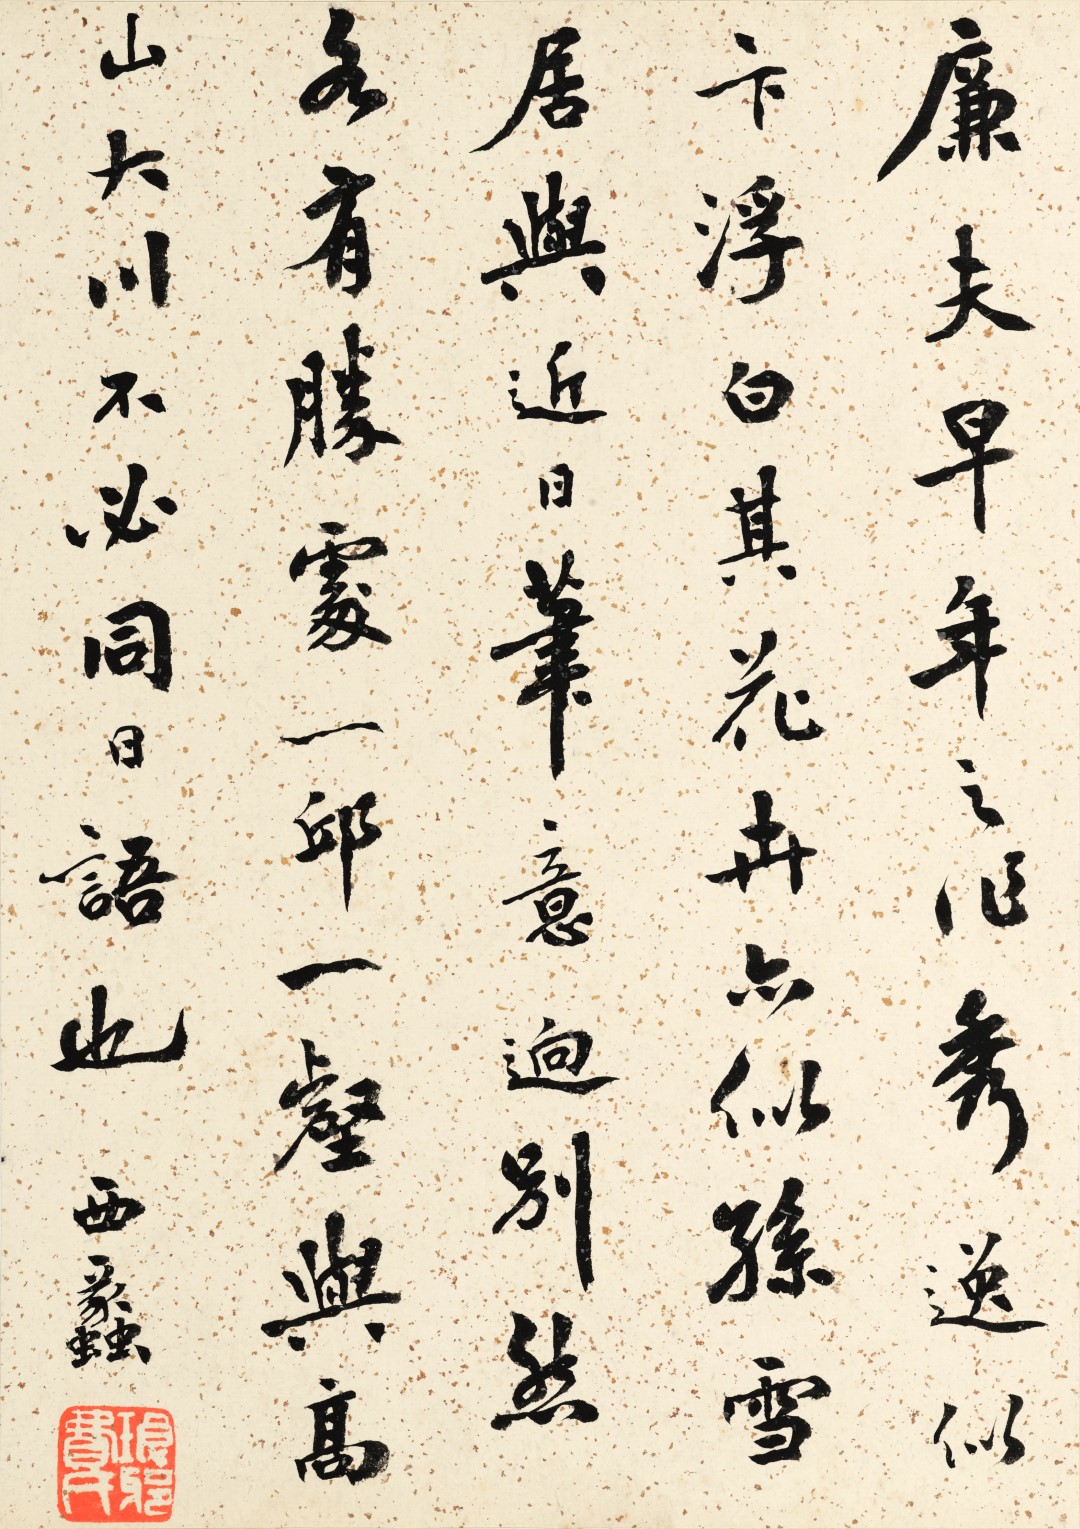 廉夫早年之作秀逸似
卞浮白其花卉亦似孫雪
居與近日筆意迥別然
各有勝處一邱一壑與高
山大川不必同日語也
西蠡
琅邪費氏